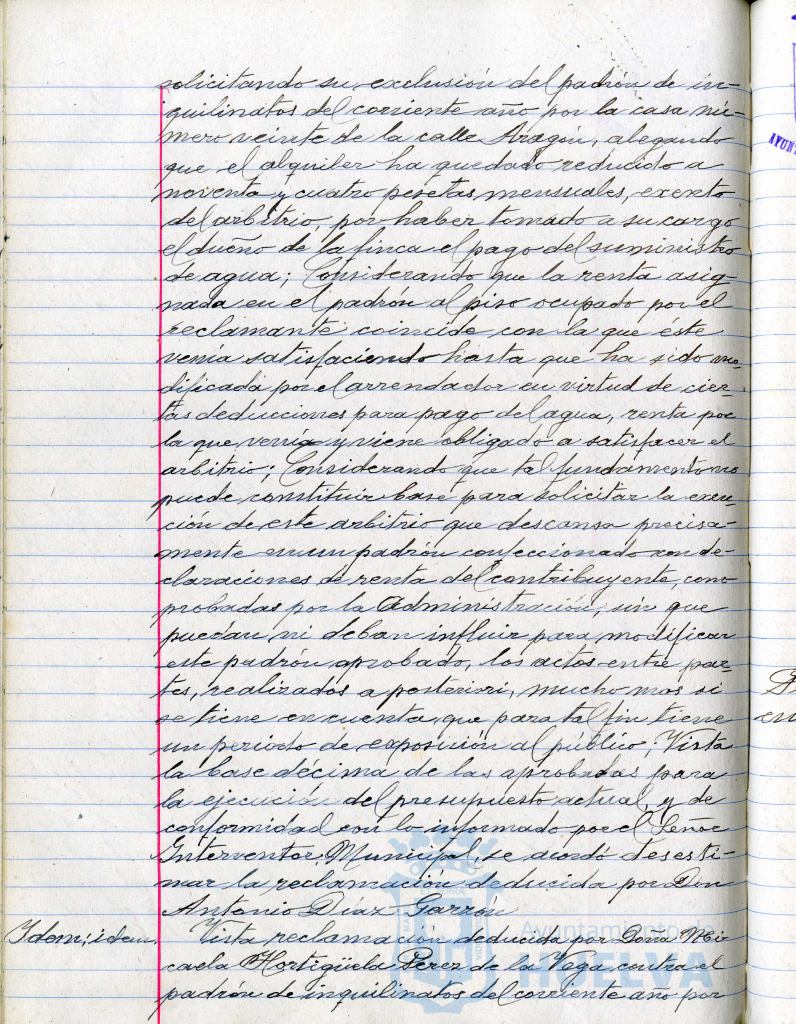 solicitando su exclusión del padrón de in-
quilinatos del corriente año por la casa nú-
mero veinte de la calle Aragón, alegando
que el alquiler ha quedado reducido a
noventa y cuatro pesetas mensuales, exento
del arbitrio, por haber tomado a su cargo
el dueño de la finca el pago del suministro
de agua; Considerando que la renta asig-
nada en el padrón al piso ocupado por el
reclamante coincide con la que éste
venia satisfaciendo hasta que ha sido mo-
dificada por el arrendador en virtud de cier-
tas deducciones para pago del agua, renta por
la que venía y viene obligado a satisfacer el
arbitrio; Considerando que tal fundamento no
puede constituir base para solicitar la exen-
ción de este arbitrio que descansa precisa-
mente en un padrón confeccionado con de-
claraciones de renta del contribuyente, com-
probadas por la Administración, sin que
puedan ni deban influir para modificar
este padrón aprobado, los actos entre par-
tes, realizados a posteriori, mucho mas si
se tiene en cuenta, que para tal fin tiene
un periodo de exposición al público; Vista
la base décima de las aprobadas para
la ejecución del presupuesto actual, y de
conformidad con lo informado por el Señor
Interventor Municipal, se acordó desesti-
mar la reclamación deducida por Don
Antonio Díaz Garzón
Idem; idem. Vista reclamación deducida por Doña Mi-
caela Hortigüela Perez de la Vega contra el
padrón de inquilinatos del corriente año por
Ayuntamiento de
HUELVA